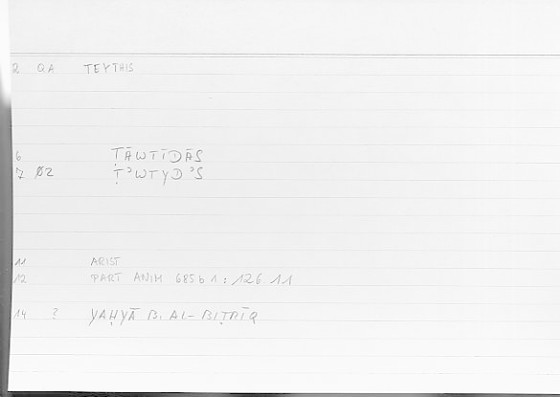 2 QA TEYTHIS
6 ṬĀWTĪDĀS
7 Ø2 ṬʾWTYDʾS
11 ARIST
12 PART ANIM 685 b 1 : 126.11
14 ? YAḤYĀ B. AL-BIṬRĪQ